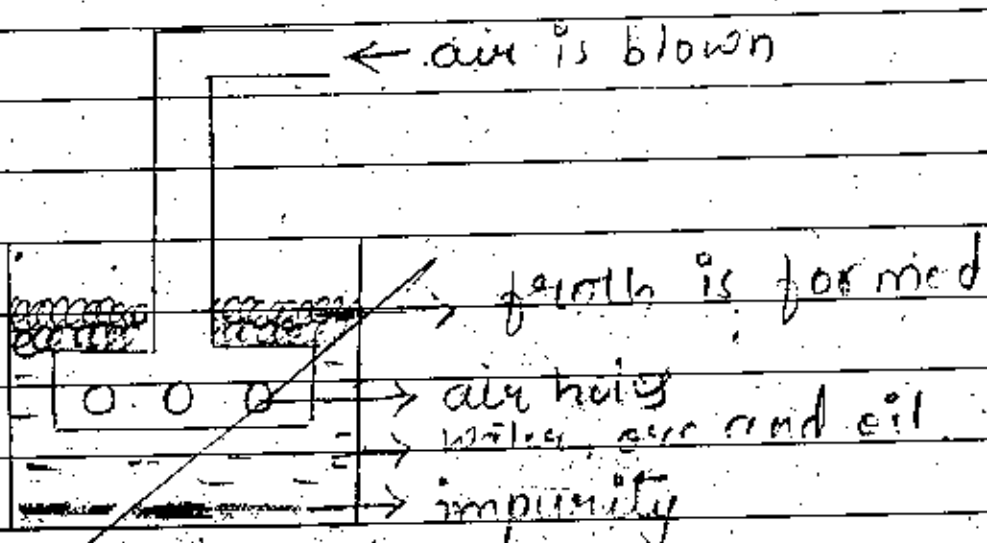 ← air is blown
→ froth is formed
→ air holes
→ water, ore and oil
→ impurity